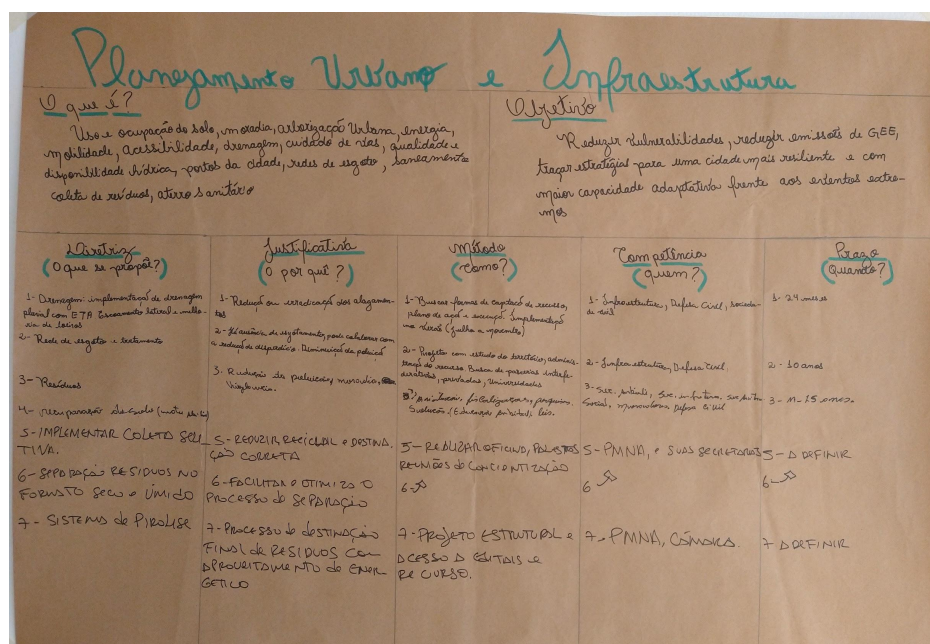 Planejamento Urbano e Infraestrutura
O que é?
Uso e ocupação do solo, moradia, arborização Urbana, energia,
mobilidade, acessibilidade, drenagem, cuidado de vias, qualidade e
disponibilidade hídrica, pontos da cidade, redes de esgoto, saneamento
coleta de resíduos, aterro sanitário
Objetivo
Reduzir Vulnerabilidades, reduzir emissões de GEE,
traçar estratégias para uma cidade mais resiliente e com
maior capacidade adaptativa frente aos eventos extre-
mos
Diretriz
(O que se propõe?)
1- Drenagem: implementação de drenagem
pluvial com ETA Escoamento lateral e melho-
ria de
2- Rede de esgoto e tratamento
3- Resíduos
4- recuperação do solo
5- IMPLEMENTAR COLETA SELE-
TIVA.
6- SEPARAÇÃO RESIDUOS NO
FORMATO SECO e ÚMIDO
7- SISTEMA de PIROLISE
Justificativa
(O por quê?)
1- Redução ou erradicação dos alagamen-
tos
2- Há ausência de esgotamento, pode colaborar com
a redução de Diminuição da poluição
3. Redução da poluição,
5- REDUZIR RECICLAR e DESTINA-
ÇÃO CORRETA
6- FACILITA e OTIMIZA O
PROCESSO de SEPARAÇÃO
7- PROCESSO de DESTINAÇÃO
FINAL de RESIDUOS COM
APROVEITAMENTO de ENER
GETICO
Método
(Como?)
1- Buscar formas de captação de recurso,
plano de ação e execução. Implementação
na (julho a novembro)
2- Projeto com estudo do território, adminis-
tração do recurso. Busca de parcerias
privadas, Universidades
5- REALIZAR OFICINA, PALESTRAS
REUNIÕES de CONCIENTIZAÇÃO
6-
7- PROJETO ESTRUTURAL e
ACESSO A EDITAIS e
RECURSO.
Competência
(quem?)
1- Infraestrutura, Defesa Civil, socieda-
de civil
2- Infraestrutura, Defesa Civil.
3- Sec.
Social, Defesa Civil
5- PMNA, e SUAS SECRETARIAS
6
7- PMNA, CÂMARA.
Prazo
(Quando?)
1- 24 meses
2- 10 anos
3- 15 anos.
5- A DEFINIR
6-
7 A DEFINIR